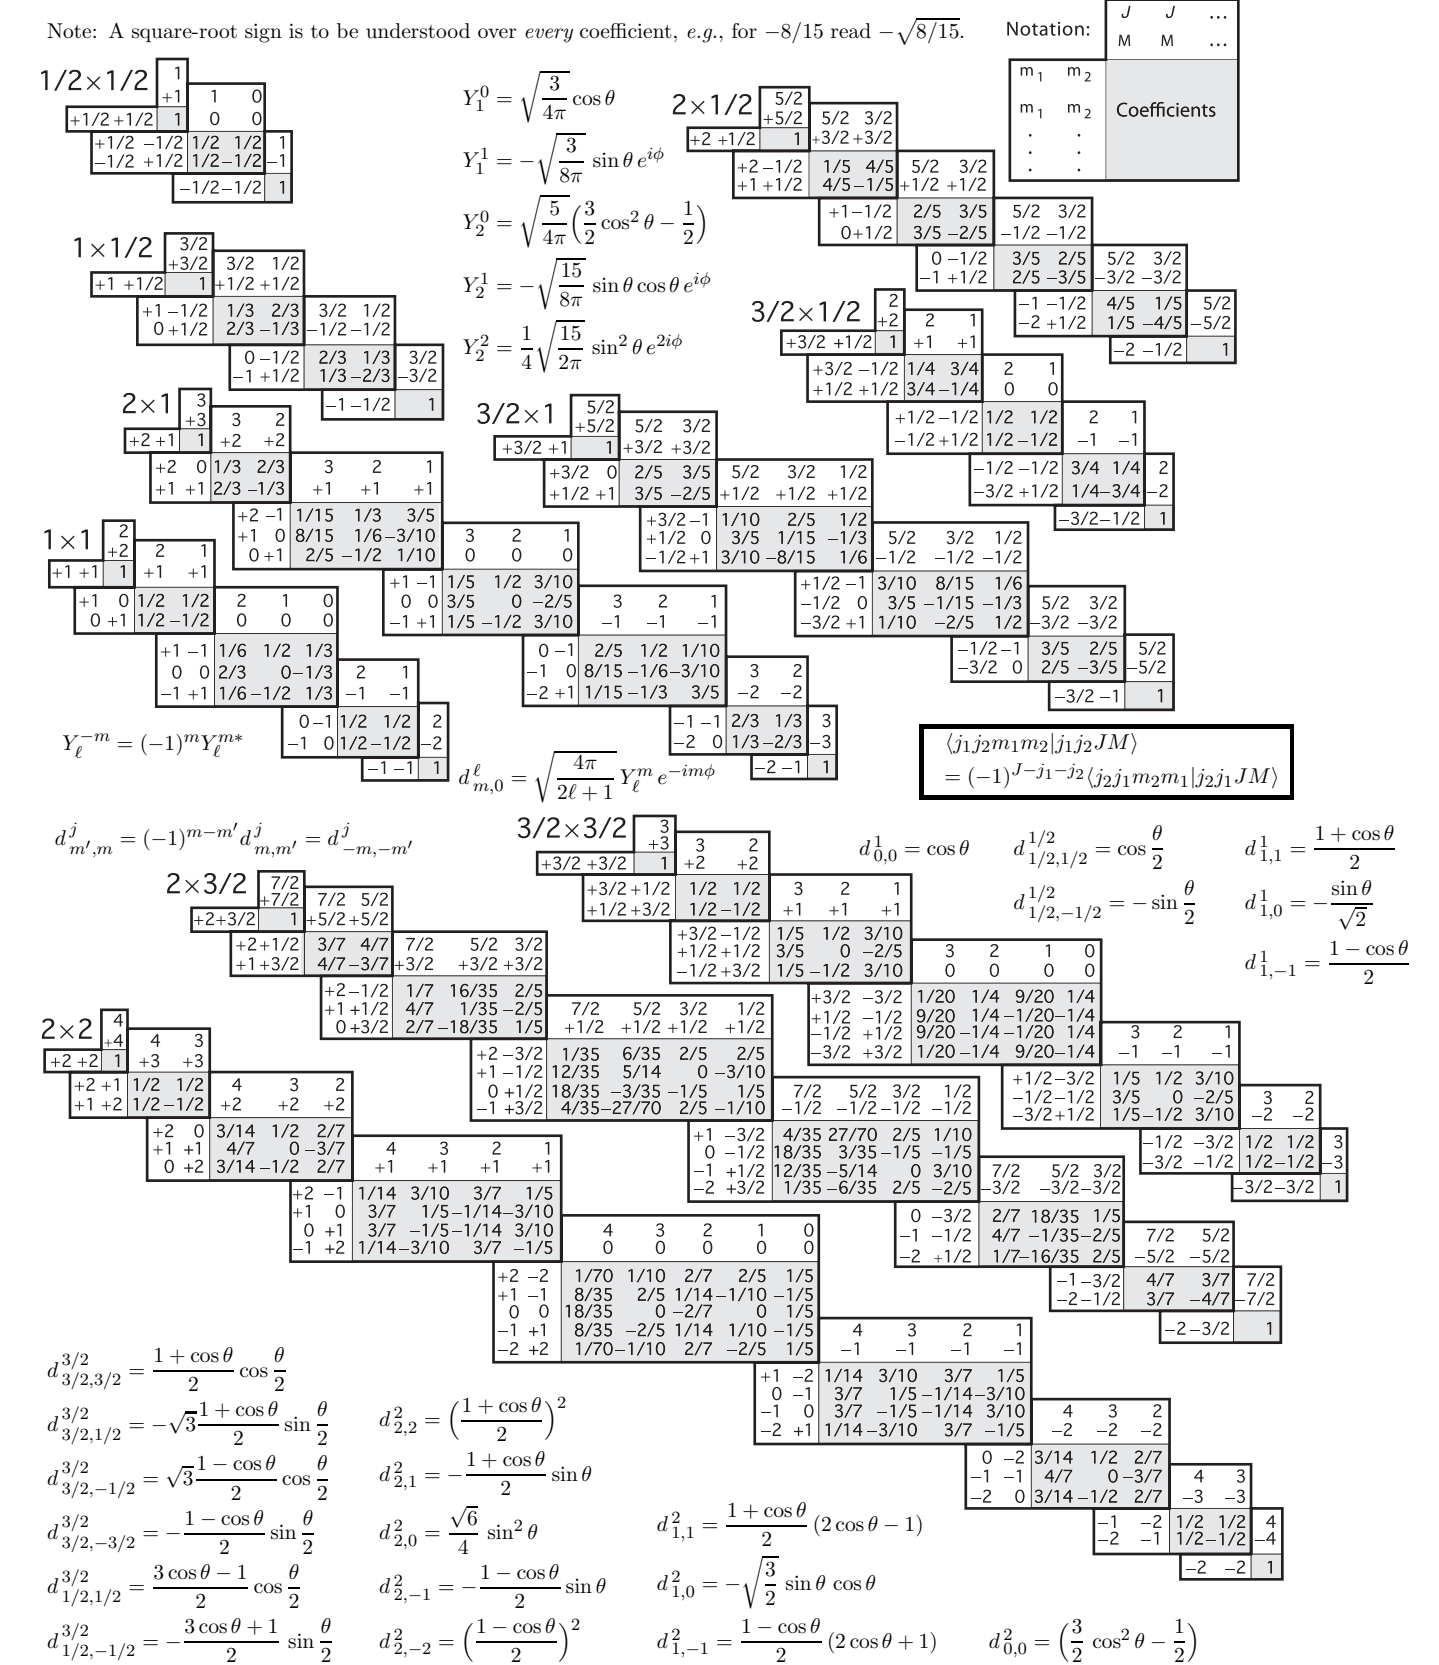 Note: A square-root sign is to be understood over every coefficient, e.g., for −8/15 read −√(8/15).
Notation:
J J ...
M M ...
m₁ m₂
m₁ m₂
. .
. .
. .
Coefficients
1/2×1/2
1
+1
1 0
0 0
+1/2 +1/2 1
+1/2 −1/2 1/2 1/2 1
−1/2 +1/2 1/2 −1/2 −1
−1/2 −1/2 1
Y₁⁰ = √(3/4π) cos θ
Y₁¹ = −√(3/8π) sin θ e^{iϕ}
Y₂⁰ = √(5/4π) (3/2 cos² θ − 1/2)
Y₂¹ = −√(15/8π) sin θ cos θ e^{iϕ}
Y₂² = 1/4 √(15/2π) sin² θ e^{2iϕ}
2×1/2
5/2
+5/2
5/2 3/2
+2 +1/2 1 +3/2 +3/2
+2 −1/2 1/5 4/5 5/2 3/2
+1 +1/2 4/5 −1/5 +1/2 +1/2
+1 −1/2 2/5 3/5 5/2 3/2
0 +1/2 3/5 −2/5 −1/2 −1/2
0 −1/2 3/5 2/5 5/2 3/2
−1 +1/2 2/5 −3/5 −3/2 −3/2
−1 −1/2 4/5 1/5 5/2
−2 +1/2 1/5 −4/5 −5/2
−2 −1/2 1
1×1/2
3/2
+3/2
3/2 1/2
+1 +1/2 1 +1/2 +1/2
+1 −1/2 1/3 2/3 3/2 1/2
0 +1/2 2/3 −1/3 −1/2 −1/2
0 −1/2 2/3 1/3 3/2
−1 +1/2 1/3 −2/3 −3/2
−1 −1/2 1
3/2×1/2
2
+2
2 1
+3/2 +1/2 1 +1 +1
+3/2 −1/2 1/4 3/4 2 1
+1/2 +1/2 3/4 −1/4 0 0
+1/2 −1/2 1/2 1/2 2 1
−1/2 +1/2 1/2 −1/2 −1 −1
−1/2 −1/2 3/4 1/4 2
−3/2 +1/2 1/4 −3/4 −2
−3/2 −1/2 1
2×1
3
+3
3 2
+2 +1 1 +2 +2
+2 0 1/3 2/3 3 2 1
+1 +1 2/3 −1/3 +1 +1 +1
+2 −1 1/15 1/3 3/5
+1 0 8/15 1/6 −3/10 3 2 1
0 +1 2/5 −1/2 1/10 0 0 0
+1 −1 1/5 1/2 3/10
0 0 3/5 0 −2/5 3 2 1
−1 +1 1/5 −1/2 3/10 −1 −1 −1
0 −1 2/5 1/2 1/10
−1 0 8/15 −1/6 −3/10 3 2
−2 +1 1/15 −1/3 3/5 −2 −2
−1 −1 2/3 1/3 3
−2 0 1/3 −2/3 −3
−2 −1 1
3/2×1
5/2
+5/2
5/2 3/2
+3/2 +1 1 +3/2 +3/2
+3/2 0 2/5 3/5 5/2 3/2 1/2
+1/2 +1 3/5 −2/5 +1/2 +1/2 +1/2
+3/2 −1 1/10 2/5 1/2
+1/2 0 3/5 1/15 −1/3 5/2 3/2 1/2
−1/2 +1 3/10 −8/15 1/6 −1/2 −1/2 −1/2
+1/2 −1 3/10 8/15 1/6
−1/2 0 3/5 −1/15 −1/3 5/2 3/2
−3/2 +1 1/10 −2/5 1/2 −3/2 −3/2
−1/2 −1 3/5 2/5 5/2
−3/2 0 2/5 −3/5 −5/2
−3/2 −1 1
1×1
2
+2
2 1
+1 +1 1 +1 +1
+1 0 1/2 1/2 2 1 0
0 +1 1/2 −1/2 0 0 0
+1 −1 1/6 1/2 1/3
0 0 2/3 0 −1/3 2 1
−1 +1 1/6 −1/2 1/3 −1 −1
0 −1 1/2 1/2 2
−1 0 1/2 −1/2 −2
−1 −1 1
Y_ℓ^{−m} = (−1)^m Y_ℓ^{m*}
d^ℓ_{m,0} = √(4π/(2ℓ + 1)) Y_ℓ^m e^{−imϕ}
⟨j₁j₂m₁m₂|j₁j₂JM⟩
= (−1)^{J−j₁−j₂}⟨j₂j₁m₂m₁|j₂j₁JM⟩
d^j_{m′,m} = (−1)^{m−m′} d^j_{m,m′} = d^j_{−m,−m′}
3/2×3/2
3
+3
3 2
+3/2 +3/2 1 +2 +2
+3/2 +1/2 1/2 1/2 3 2 1
+1/2 +3/2 1/2 −1/2 +1 +1 +1
+3/2 −1/2 1/5 1/2 3/10
+1/2 +1/2 3/5 0 −2/5 3 2 1 0
−1/2 +3/2 1/5 −1/2 3/10 0 0 0 0
+3/2 −3/2 1/20 1/4 9/20 1/4
+1/2 −1/2 9/20 1/4 −1/20 −1/4
−1/2 +1/2 9/20 −1/4 −1/20 1/4 3 2 1
−3/2 +3/2 1/20 −1/4 9/20 −1/4 −1 −1 −1
+1/2 −3/2 1/5 1/2 3/10
−1/2 −1/2 3/5 0 −2/5 3 2
−3/2 +1/2 1/5 −1/2 3/10 −2 −2
−1/2 −3/2 1/2 1/2 3
−3/2 −1/2 1/2 −1/2 −3
−3/2 −3/2 1
d¹_{0,0} = cos θ
d^{1/2}_{1/2,1/2} = cos θ/2
d^{1/2}_{1/2,−1/2} = − sin θ/2
d¹_{1,1} = (1 + cos θ)/2
d¹_{1,0} = − sin θ/√2
d¹_{1,−1} = (1 − cos θ)/2
2×3/2
7/2
+7/2
7/2 5/2
+2 +3/2 1 +5/2 +5/2
+2 +1/2 3/7 4/7 7/2 5/2 3/2
+1 +3/2 4/7 −3/7 +3/2 +3/2 +3/2
+2 −1/2 1/7 16/35 2/5
+1 +1/2 4/7 1/35 −2/5 7/2 5/2 3/2 1/2
0 +3/2 2/7 −18/35 1/5 +1/2 +1/2 +1/2 +1/2
+2 −3/2 1/35 6/35 2/5 2/5
+1 −1/2 12/35 5/14 0 −3/10
0 +1/2 18/35 −3/35 −1/5 1/5 7/2 5/2 3/2 1/2
−1 +3/2 4/35 −27/70 2/5 −1/10 −1/2 −1/2 −1/2 −1/2
+1 −3/2 4/35 27/70 2/5 1/10
0 −1/2 18/35 3/35 −1/5 −1/5
−1 +1/2 12/35 −5/14 0 3/10 7/2 5/2 3/2
−2 +3/2 1/35 −6/35 2/5 −2/5 −3/2 −3/2 −3/2
0 −3/2 2/7 18/35 1/5
−1 −1/2 4/7 −1/35 −2/5 7/2 5/2
−2 +1/2 1/7 −16/35 2/5 −5/2 −5/2
−1 −3/2 4/7 3/7 7/2
−2 −1/2 3/7 −4/7 −7/2
−2 −3/2 1
2×2
4
+4
4 3
+2 +2 1 +3 +3
+2 +1 1/2 1/2 4 3 2
+1 +2 1/2 −1/2 +2 +2 +2
+2 0 3/14 1/2 2/7
+1 +1 4/7 0 −3/7 4 3 2 1
0 +2 3/14 −1/2 2/7 +1 +1 +1 +1
+2 −1 1/14 3/10 3/7 1/5
+1 0 3/7 1/5 −1/14 −3/10
0 +1 3/7 −1/5 −1/14 3/10 4 3 2 1 0
−1 +2 1/14 −3/10 3/7 −1/5 0 0 0 0 0
+2 −2 1/70 1/10 2/7 2/5 1/5
+1 −1 8/35 2/5 1/14 −1/10 −1/5
0 0 18/35 0 −2/7 0 1/5
−1 +1 8/35 −2/5 1/14 1/10 −1/5 4 3 2 1
−2 +2 1/70 −1/10 2/7 −2/5 1/5 −1 −1 −1 −1
+1 −2 1/14 3/10 3/7 1/5
0 −1 3/7 1/5 −1/14 −3/10
−1 0 3/7 −1/5 −1/14 3/10 4 3 2
−2 +1 1/14 −3/10 3/7 −1/5 −2 −2 −2
0 −2 3/14 1/2 2/7
−1 −1 4/7 0 −3/7 4 3
−2 0 3/14 −1/2 2/7 −3 −3
−1 −2 1/2 1/2 4
−2 −1 1/2 −1/2 −4
−2 −2 1
d^{3/2}_{3/2,3/2} = (1 + cos θ)/2 cos θ/2
d^{3/2}_{3/2,1/2} = −√3 (1 + cos θ)/2 sin θ/2
d^{3/2}_{3/2,−1/2} = √3 (1 − cos θ)/2 cos θ/2
d^{3/2}_{3/2,−3/2} = −(1 − cos θ)/2 sin θ/2
d^{3/2}_{1/2,1/2} = (3 cos θ − 1)/2 cos θ/2
d^{3/2}_{1/2,−1/2} = −(3 cos θ + 1)/2 sin θ/2
d²_{2,2} = ((1 + cos θ)/2)²
d²_{2,1} = −(1 + cos θ)/2 sin θ
d²_{2,0} = √6/4 sin² θ
d²_{2,−1} = −(1 − cos θ)/2 sin θ
d²_{2,−2} = ((1 − cos θ)/2)²
d²_{1,1} = (1 + cos θ)/2 (2 cos θ − 1)
d²_{1,0} = −√(3/2) sin θ cos θ
d²_{1,−1} = (1 − cos θ)/2 (2 cos θ + 1)
d²_{0,0} = (3/2 cos² θ − 1/2)